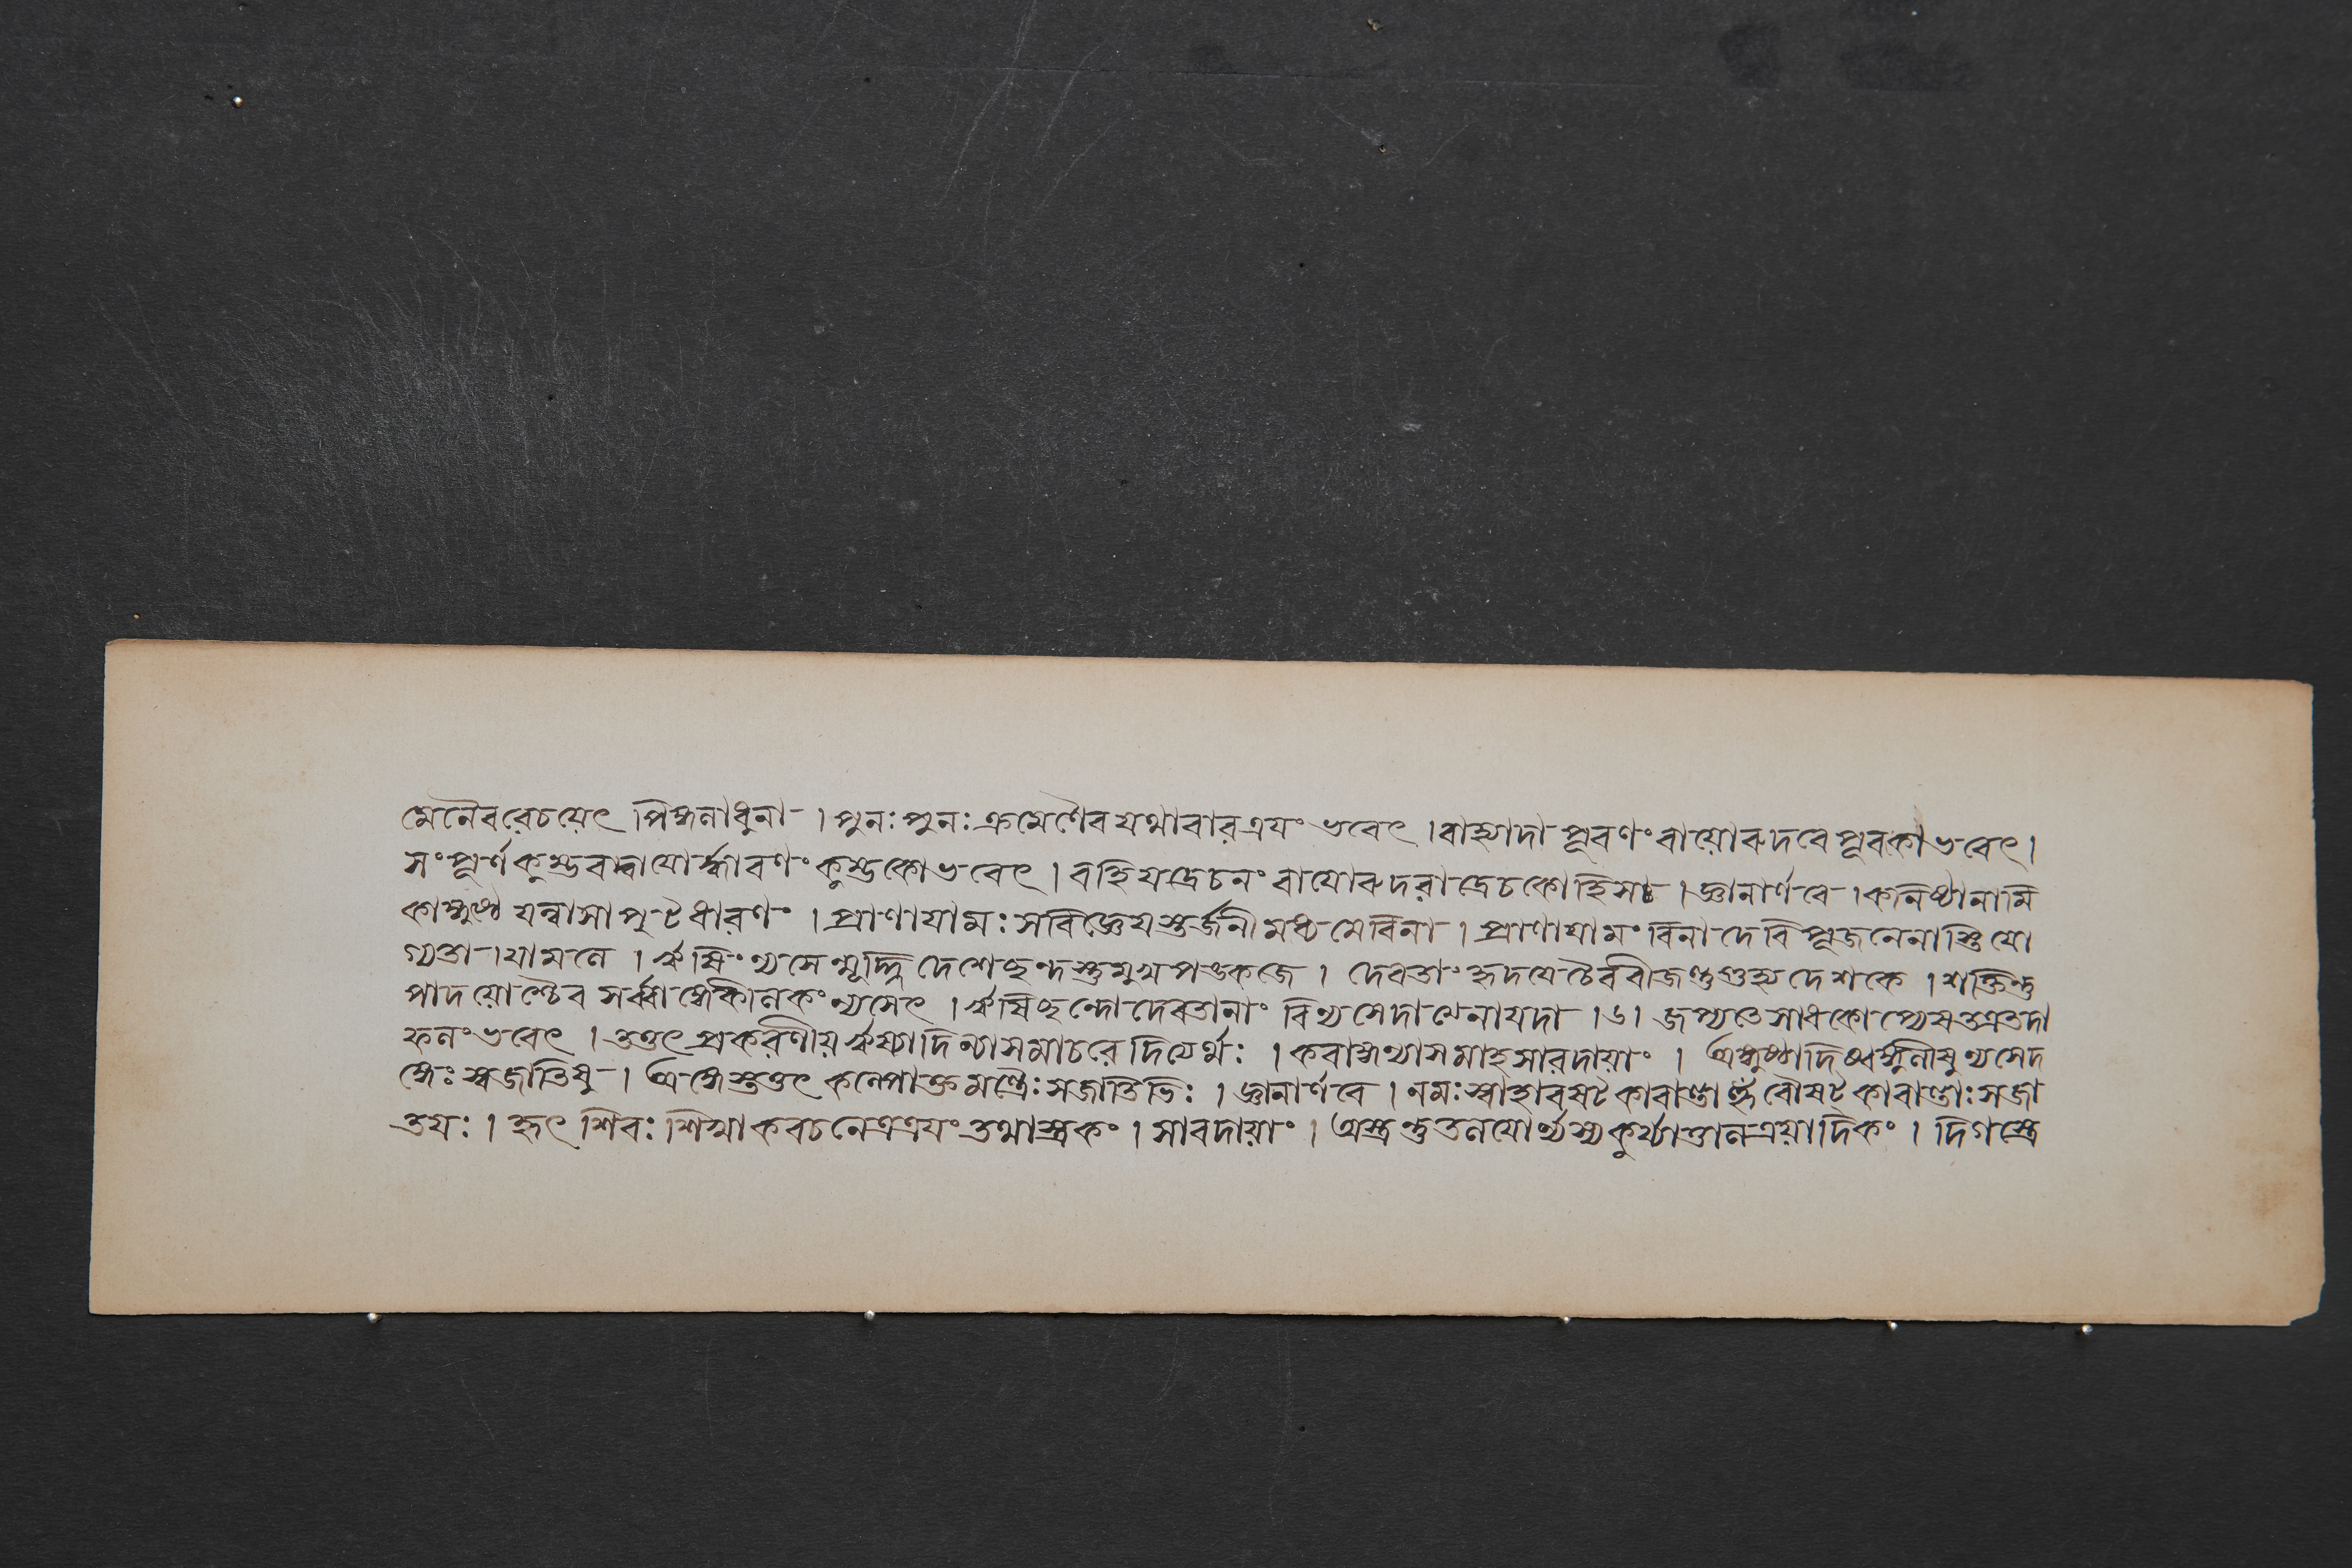 মেনৈবরেচয়েৎ পিঙ্গনাধুনা । পুনঃ পুনঃ ক্রমেণৈব যথাবারত্রযং ভবেৎ । বাহ্যাদা পূরণং বায়োরুদরে পূরকোভবেৎ ।
সংপূর্ণকুম্ভবদ্বাযোর্দ্ধারণং কুম্ভকোভবেৎ । বহির্যদ্রেচনং বাযোরুদরাদ্রেচকোহিসঃ । জ্ঞানার্ণবে । কনিষ্ঠানামি
কাঙ্গুষ্ঠৈ যন্নাসাপুটধারণং । প্রাণাযামঃ সবিজ্ঞেযস্তর্জনীমধ্যমেবিনা । প্রাণাযামং বিনা দেবি পূজনেনাস্তিযো
গ্যতা । যামলে । ঋষিং ন্যসেন্মূর্দ্ধ্নিদেশেছন্দস্তুমুখপঙ্কজে । দেবতাং হৃদযেচৈববীজন্তুগুহ্যদেশকে । শক্তিন্তু
পাদয়োশ্চৈব সর্ব্বাঙ্গেকীলকং ন্যসেৎ । ঋষিছন্দোদেবতানাং বিন্যসেদা নেনাযদা ।৬। জপ্যতে সাধকোপ্যেষতত্রতদা
ফলং ভবেৎ । তত্তৎ প্রকরণীয়ঋষ্যাদিন্যাসমাচরেদিযর্থঃ । করাঙ্গন্যাসমাহ সারদায়াং । অঙ্গুষ্ঠাদিষ্বঙ্গুলীষুন্যসেদ
ঙ্গৈঃ স্বজাতিষু । অঙ্গেস্তত্তৎ কল্পোক্তমন্ত্রৈঃ সজাতিভিঃ । জ্ঞানার্ণবে । নমঃ স্বাহাবষট কারান্তাহুঁ বৌষট কারান্তাঃ সজা
তযঃ । হৃৎ শিরঃ শিখাকবচনেত্রত্রযং তথাস্ত্রকং । সারদায়াং । অস্ত্রন্তুতলযোর্ন্যস্য কুর্য্যাত্তালত্রয়াদিকং । দিগস্ত্রে